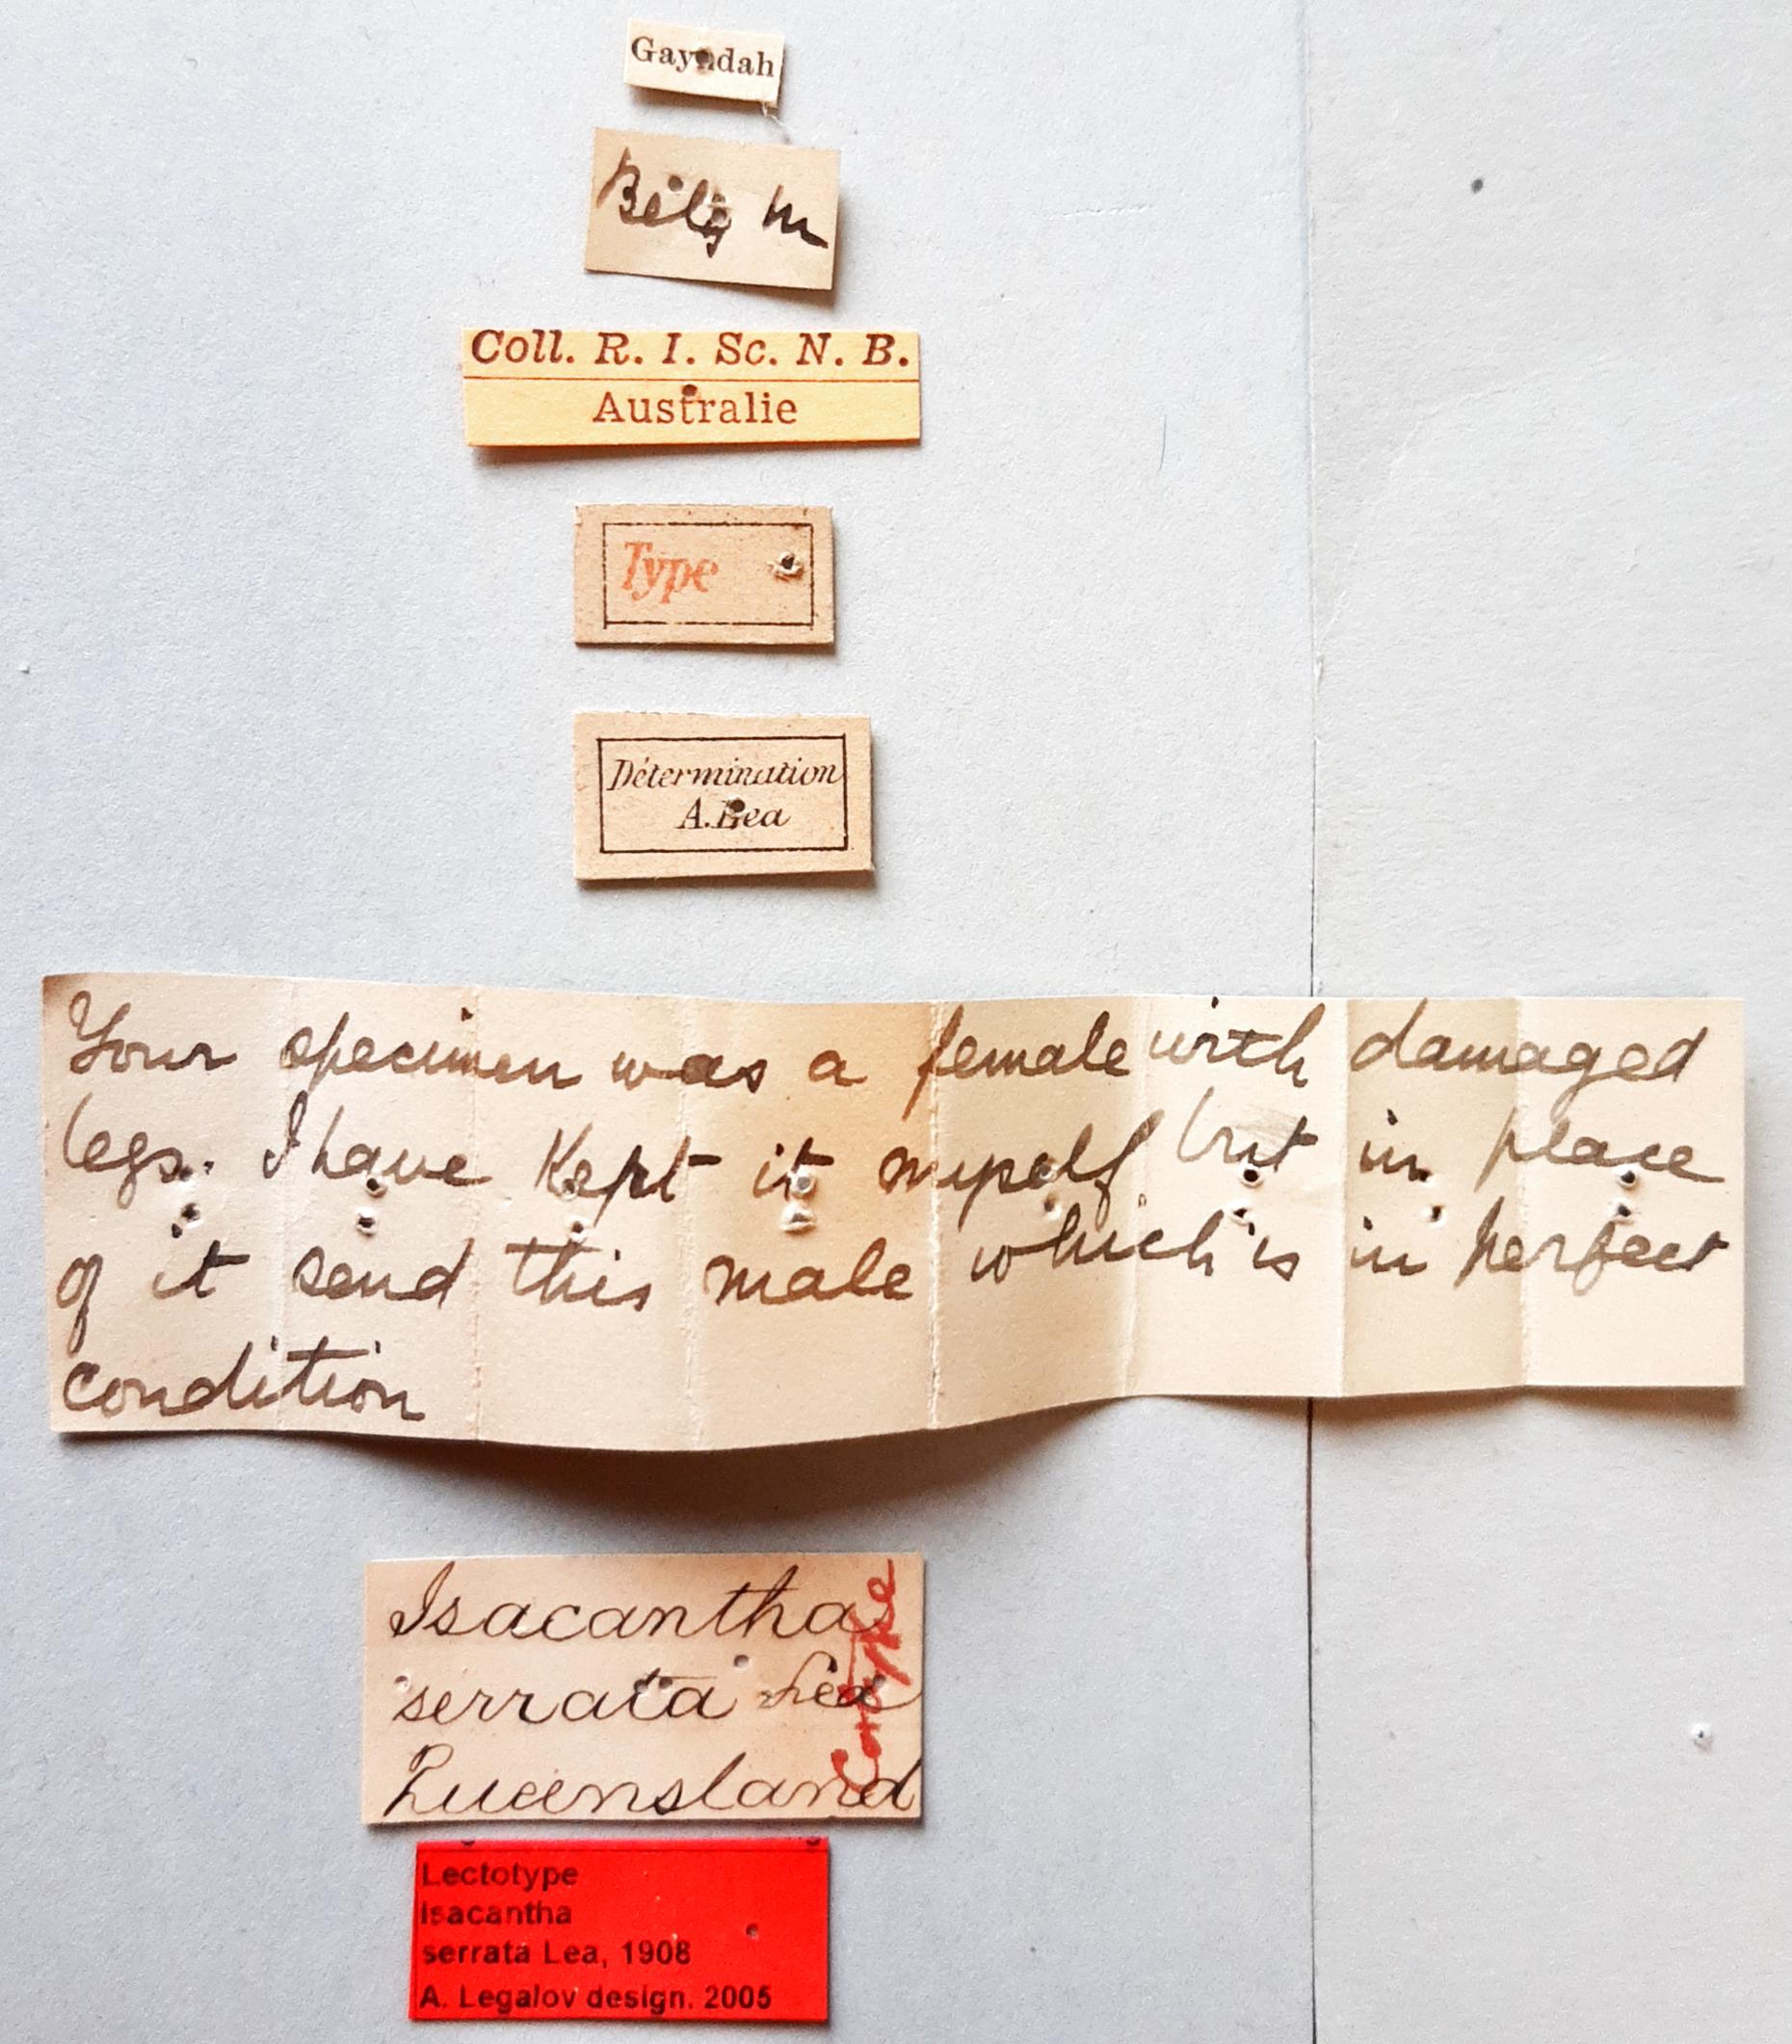 Gayndah
Coll. R. I. Sc. N. B.
Australie
Type
Détermination
A. Lea
Your specimen was a female with damaged
legs. I have kept it myself but in place
of it send this male which is in perfect
condition
Isacantha
serrata Lea
Queensland
Cotype
Lectotype
Isacantha
serrata Lea, 1908
A. Legalov design. 2005